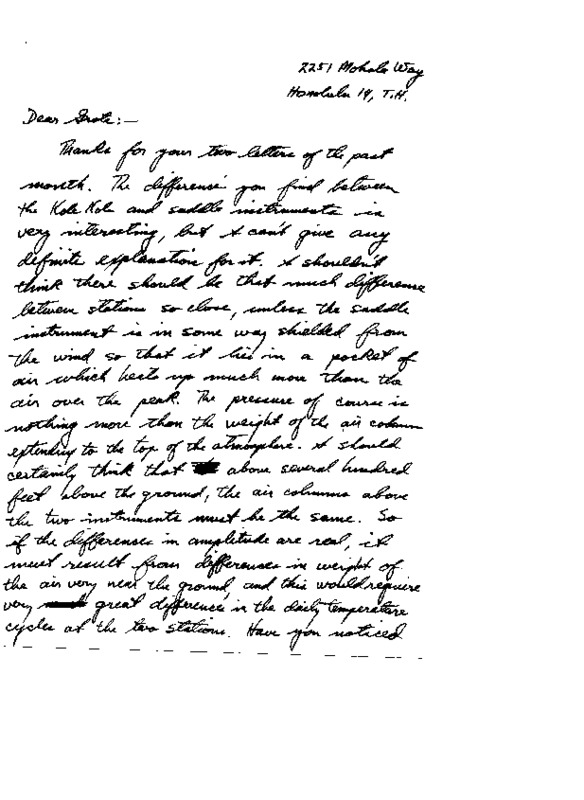 2251 Mohala Way
Honolulu 14, T.H.
Dear Grote:—
Thanks for your two letters of the past
month. The difference you find between
the Kole Kole and saddle instruments is
very interesting, but I can't give any
definite explanation for it. I shouldn't
think there should be that much difference
between stations so close, unless the saddle
instrument is in some way shielded from
the wind so that it lies in a pocket of
air which heats up much more than the
air over the peak. The pressure of course is
nothing more than the weight of the air column
extending to the top of the atmosphere. I should
certainly think that above several hundred
feet above the ground, the air columns above
the two instruments must be the same. So
if the differences in amplitude are real, it
must result from differences in weight of
the air very near the ground, and this would require
very great differences in the daily temperature
cycles at the two stations. Have you noticed